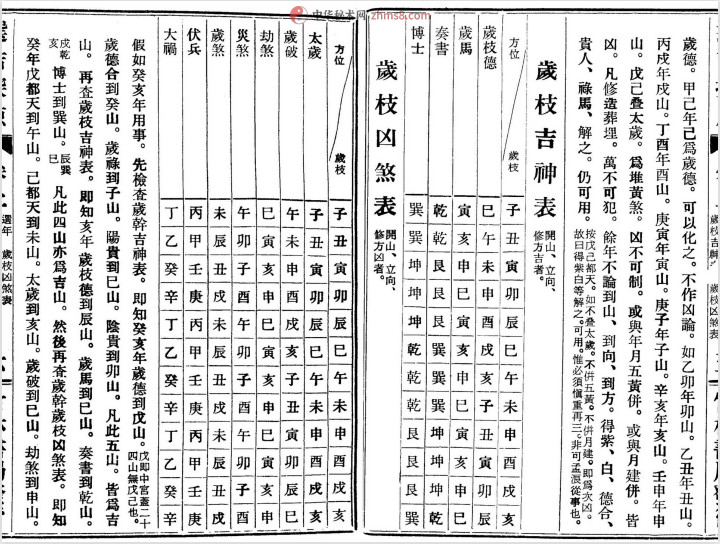 歲德。甲己年己為歲德。可以化之。不作凶論。如乙卯年卯山。乙丑年丑山。
丙戌年戌山。丁酉年酉山。庚寅年寅山。庚子年子山。辛亥年亥山。壬申年申
山。戊己叠太歲。為堆黃煞。凶不可制。或與年月五黃併。或與月建併。皆
凶。凡修造葬埋。萬不可犯。餘年不論到山、到向、到方。得紫、白、德合、
貴人、祿馬、解之。仍可用。
按戊己都天。如不叠太歲。不併五黃。不併月建。即為次凶。
故曰得紫白等解之。可用。惟必須慎重再三。非可孟浪從事也。
歲枝吉神表
開山、立向、
修方吉者。
方位 歲枝 子丑寅卯辰巳午未申酉戌亥
歲枝德 巳午未申酉戌亥子丑寅卯辰
歲馬 寅亥申巳寅亥申巳寅亥申巳
奏書 乾乾艮艮艮巽巽巽坤坤坤乾
博士 巽巽坤坤坤乾乾乾艮艮艮巽
歲枝凶煞表
開山、立向、
修方凶者。
中华秘术网 zhms8.com
方位 歲枝 子丑寅卯辰巳午未申酉戌亥
太歲 子丑寅卯辰巳午未申酉戌亥
歲破 午未申酉戌亥子丑寅卯辰巳
劫煞 巳寅亥申巳寅亥申巳寅亥申
災煞 午卯子酉午卯子酉午卯子酉
歲煞 未辰丑戌未辰丑戌未辰丑戌
伏兵 丙甲壬庚丙甲壬庚丙甲壬庚
大禍 丁乙癸辛丁乙癸辛丁乙癸辛
假如癸亥年用事。先檢查歲幹吉神表。即知癸亥年歲德到戊山。
戊即中宮蓋二十
四山無戊己也。
歲德合到癸山。歲祿到子山。陽貴到巳山。陰貴到卯山。凡此五山。皆為吉
山。再查歲枝吉神表。即知亥年歲枝德到辰山。歲馬到巳山。奏書到乾山。
戌乾
亥
博士到巽山。
辰巽
巳
凡此四山亦為吉山。然後再查歲幹歲枝凶煞表。即知
癸年戊都天到午山。己都天到未山。太歲到亥山。歲破到巳山。劫煞到申山。
選年 歲枝凶煞表